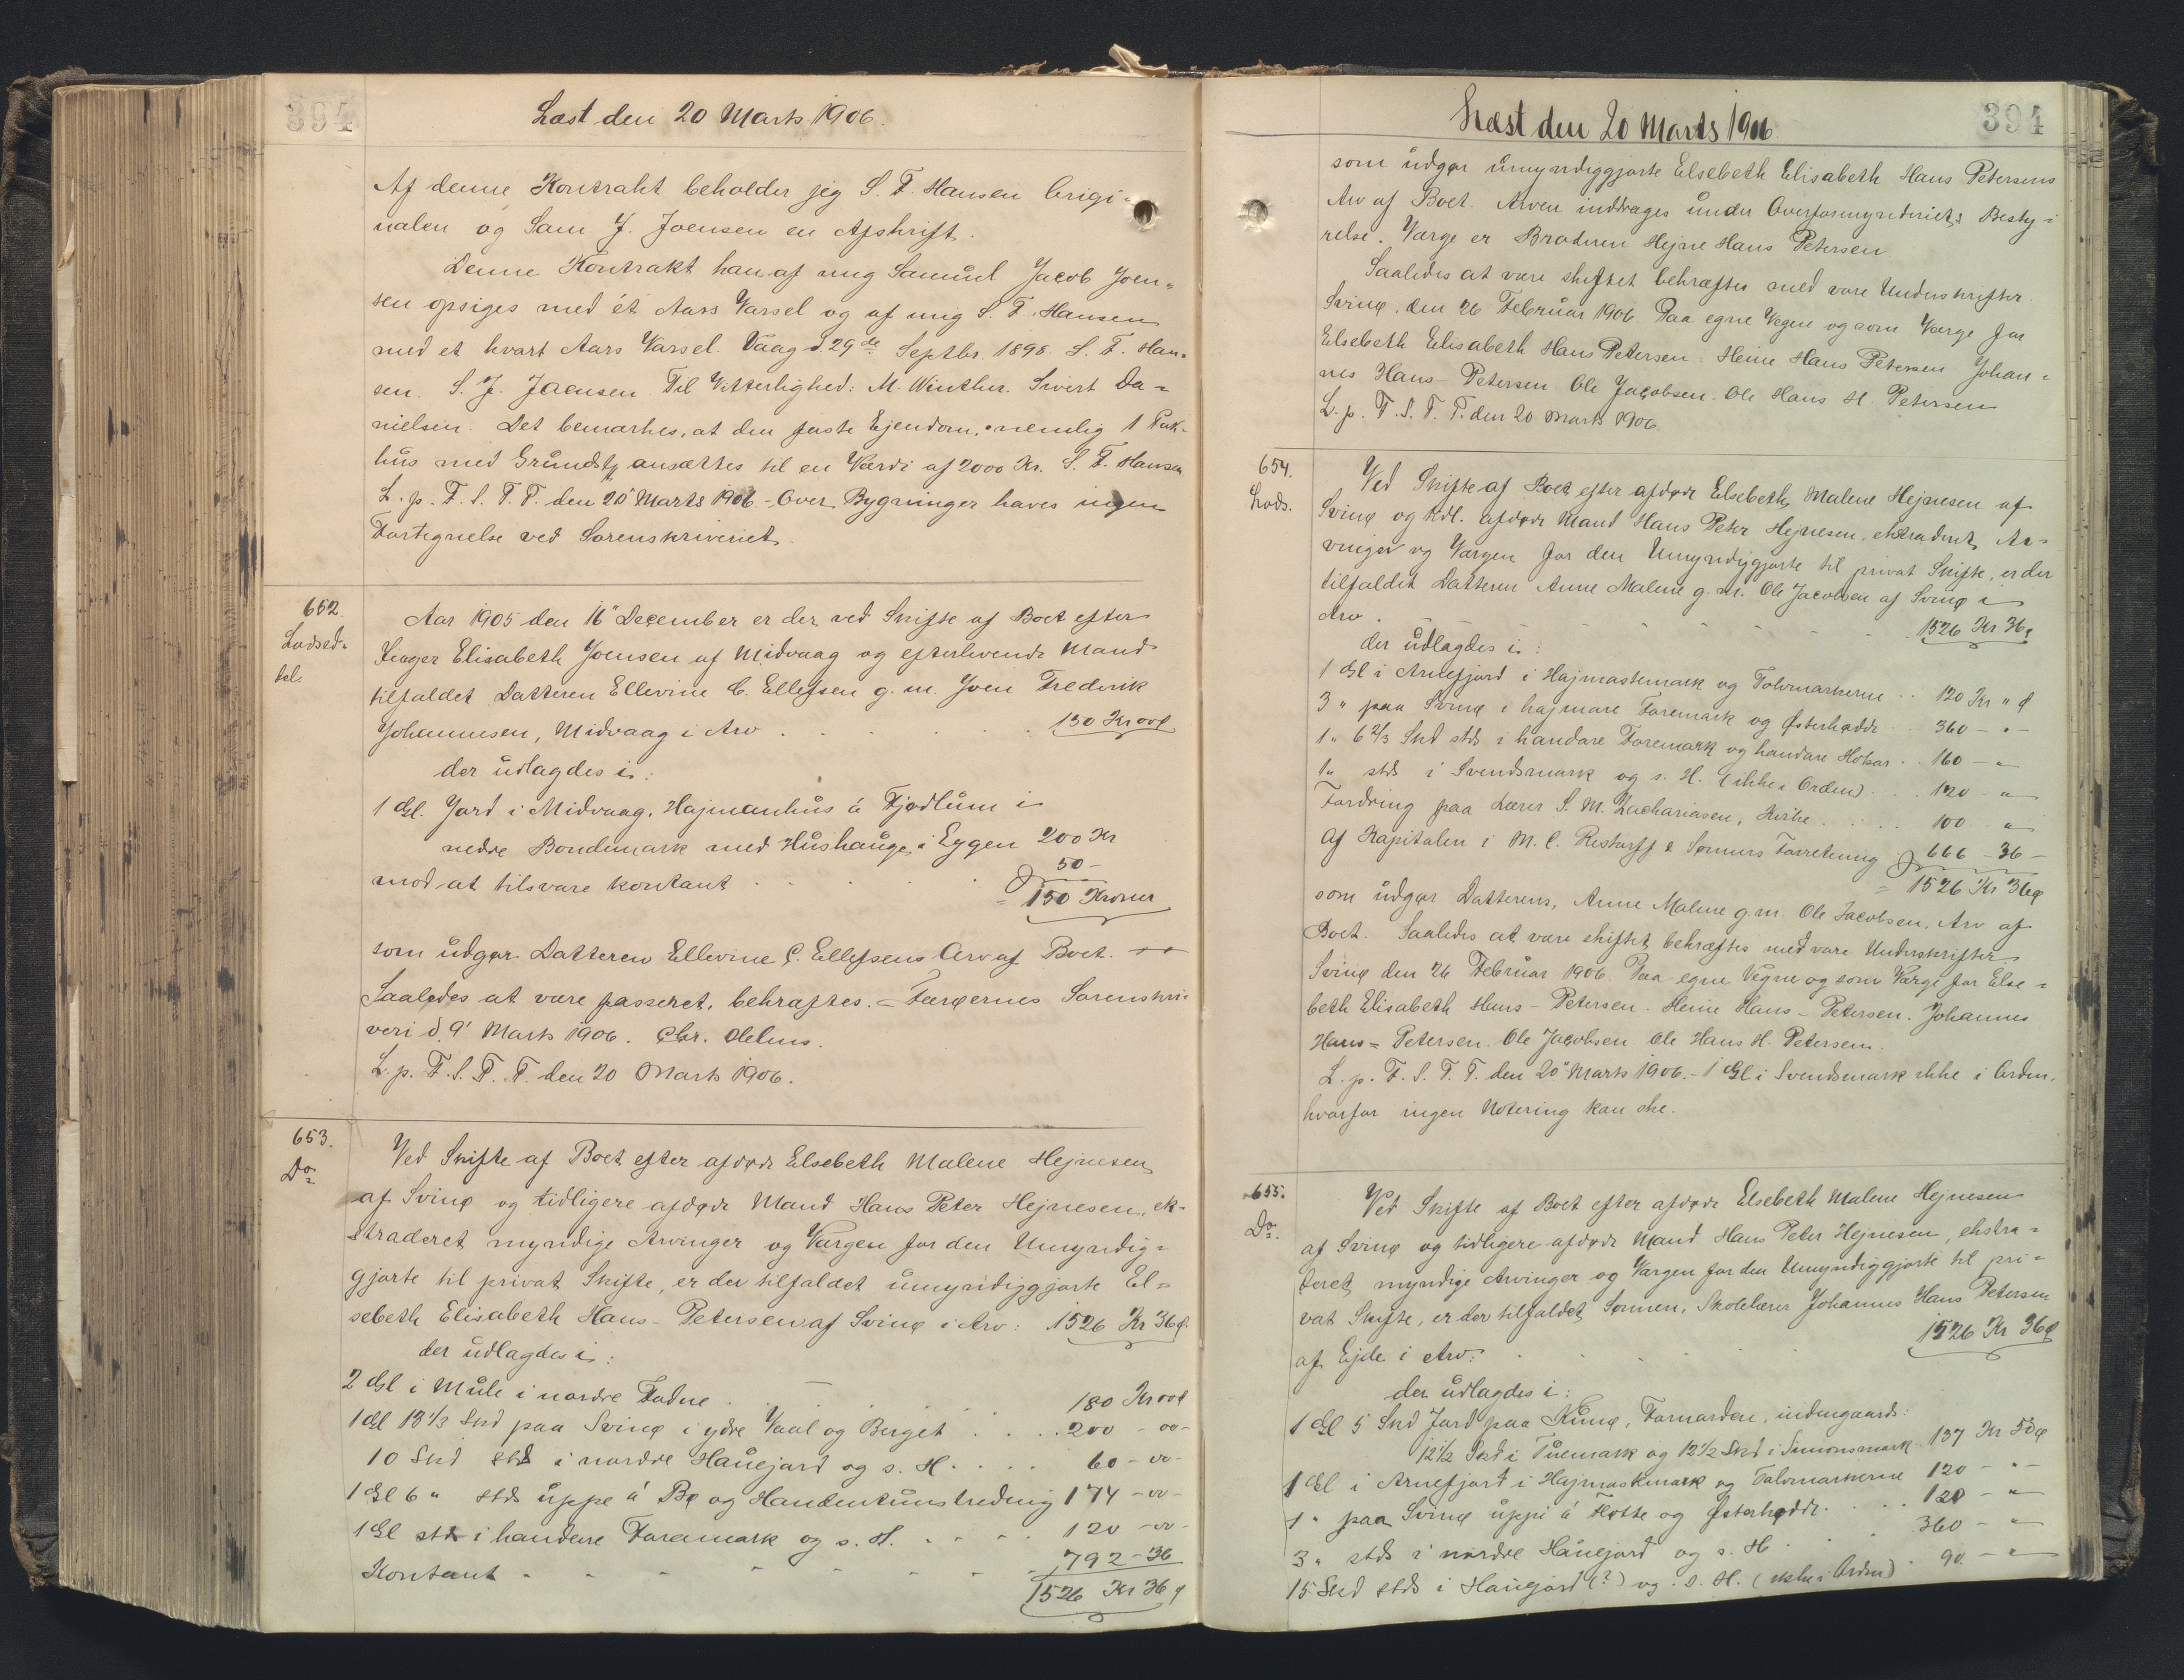 394
Læst den 20 Marts 1906.
Af denne Kontrakt beholder jeg S. F. Hansen Origi-
nalen og Sam. J. Joensen en Afskrift.
Denne Kontrakt kan af mig Samuel Jacob Joen-
sen opsiges med ét Aars Varsel og af mig S. F. Hansen
med et hvart Aars Varsel. Vaag d. 29de Septbr. 1898. S. F. Han-
sen. S. J. Joensen. Til Vitterlighed: M. Winther. Sivert Da-
nielsen. Det bemærkes, at den faste Ejendom, nemlig 1 Pak-
hus med Grundstk ansættes til en Værdi af 2000 Kr. S. F. Hansen
L. p. F. S. T. P. den 20" Marts 1906. - Over Bygninger haves ingen
Fortegnelse ved Sorenskriveriet.
652.
Lodsed-
tel.
Aar 1905 den 16" December er der ved Skifte af Boet efter
Elisabeth Joensen af Midvaag og efterlevende Mand
tilfaldet Datteren Ellevine C. Ellefsen g. m. Joen Frederik
Johannesen, Midvaag i Arv . . . . . . 150 Kr 00 ø
der udlagdes i:
1 Gl. Jord i Midvaag, Hajmanhus á Fjødlum i
nedre Bondemark med Hushauge i Eyggen 200 Kr
mod at tilsvare kontant . . . . 50 -
= 150 Kroner
som udgør Datteren Ellevine C. Ellefsens Arv af Boet.
Saaledes at være passeret, bekræftes. - Færøernes Sorenskri-
veri d. 9' Marts 1906. Chr. Olelius.
L. p. F. S. T. P. den 20 Marts 1906.
653.
Do
Ved Skifte af Boet efter afdøde Elsebeth Malene Hejnesen
af Svinø og tidligere afdøde Mand Hans Peter Hejnesen, ek-
straderet myndige Arvinger og Værgen for den Umyndig-
gjorte til privat Skifte, er der tilfaldet umyndiggjorte El-
sebeth Elisabeth Hans-Petersen af Svinø i Arv: 1526 Kr 36 ø.
der udlagdes i:
2 Gl i Mule i nordre Fadne . . . . . 180 Kr 00 ø
1 Gl 13 1/3 Skd paa Svinø i ydre Vaal og Berget . . . . 200 - 00 -
10 Skd stds i nordre Haugejord og s. H. . . . . 60 - 00 -
1 Gl 6 " stds uppe á Bø og Handentunstreding 174 - 00 -
1 Gl stds i handere Faremark og s. H. . . . . 120 - 00 -
Kontant - - - - - - - 792 - 36
1526 Kr 36 ø
Læst den 20 Marts 1906.
394
som udgør umyndiggjorte Elsebeth Elisabeth Hans Petersens
Arv af Boet. Arven inddrages under Overformynderiets Besty-
relse. Værge er Broderen Hejne Hans Petersen
Saaledes at være skiftet bekræftes med vore Underskrifter.
Svinø, den 26 Februar 1906. Paa egne Vegne og som Værge for
Elsebeth Elisabeth Hans Petersen: Heine Hans Petersen Johan-
nes Hans-Petersen Ole Jacobsen. Ole Hans H. Petersen
L. p. F. S. T. P. den 20 Marts 1906.
654.
Lods.
Ved Skifte af Boet efter afdøde Elsebeth Malene Hejnesen af
Svinø og tidl. afdøde Mand Hans Peter Hejnesen, ekstraderet Ar-
vinger og Værgen for den Umyndiggjorte til privat Skifte, er der
tilfaldet Datteren Anne Malene g. m. Ole Jacobsen af Svinø i
Arv . - - - - - - 1526 Kr 36 ø
der udlagdes i:
1 Gl i Arnefjord i Hajmastemark og Tolvmarkerne . . 120 Kr " ø
3 " paa Svinø i hajmare Faremark og Østerhødde . 360 - " -
1 " 6 2/3 Skd stds i handare Faremark og handare Hølsar . . 160 - "
1 " stds i Svendsmark og s. H. (ikke i Orden) . . . 120 - "
Fordring paa Lærer S. M. Zachariasen, Kirke . . . . 100 - "
Af Kapitalen i M. C. Restorff & Sønners Forretning 666 - 36 -
= 1526 Kr 36 ø
som udgør Datterens, Anne Malene g. m. Ole Jacobsen, Arv af
Boet. Saaledes at være skiftet bekræftes med vore Underskrifter
Svinø den 26 Februar 1906. Paa egne Vegne og som Værge for Else-
beth Elisabeth Hans-Petersen. Heine Hans-Petersen. Johannes
Hans-Petersen. Ole Jacobsen Ole Hans H. Petersen.
L. p. F. S. T. P. den 20" Marts 1906. - 1 Gl i Svendsmark ikke i Orden,
hvorfor ingen Notering kan ske.
655.
Do.
Ved Skifte af Boet efter afdøde Elsebeth Malene Hejnesen
af Svinø og tidligere afdøde Mand Hans Peter Hejnesen, ekstra-
deret myndige Arvinger og Værgen for den Umyndiggjorte til pri-
vat Skifte, er der tilfaldet Sønnen, Skolelærer Johannes Hans Petersen
af Ejde i Arv: . . . . . 1526 Kr 36 ø
der udlagdes i:
1 Gl 5 Skd Jord paa Kunø, Fornarden, indengaards:
12 1/2 Skd i Tuemark og 12 1/2 Skd i Simonsmark 137 Kr 50 ø
1 Gl i Arnefjord i Hajmaskmark og Tolvmarkerne 120 - " -
1 " paa Svinø uppi á Høtte og Østerhødde. . . . 120 - "
3 " stds i nordre Haugejord og s. H. . . 360 - "
15 Skd stds i Haugjord (?) og s. H. (ikke i Orden) . 90 - "